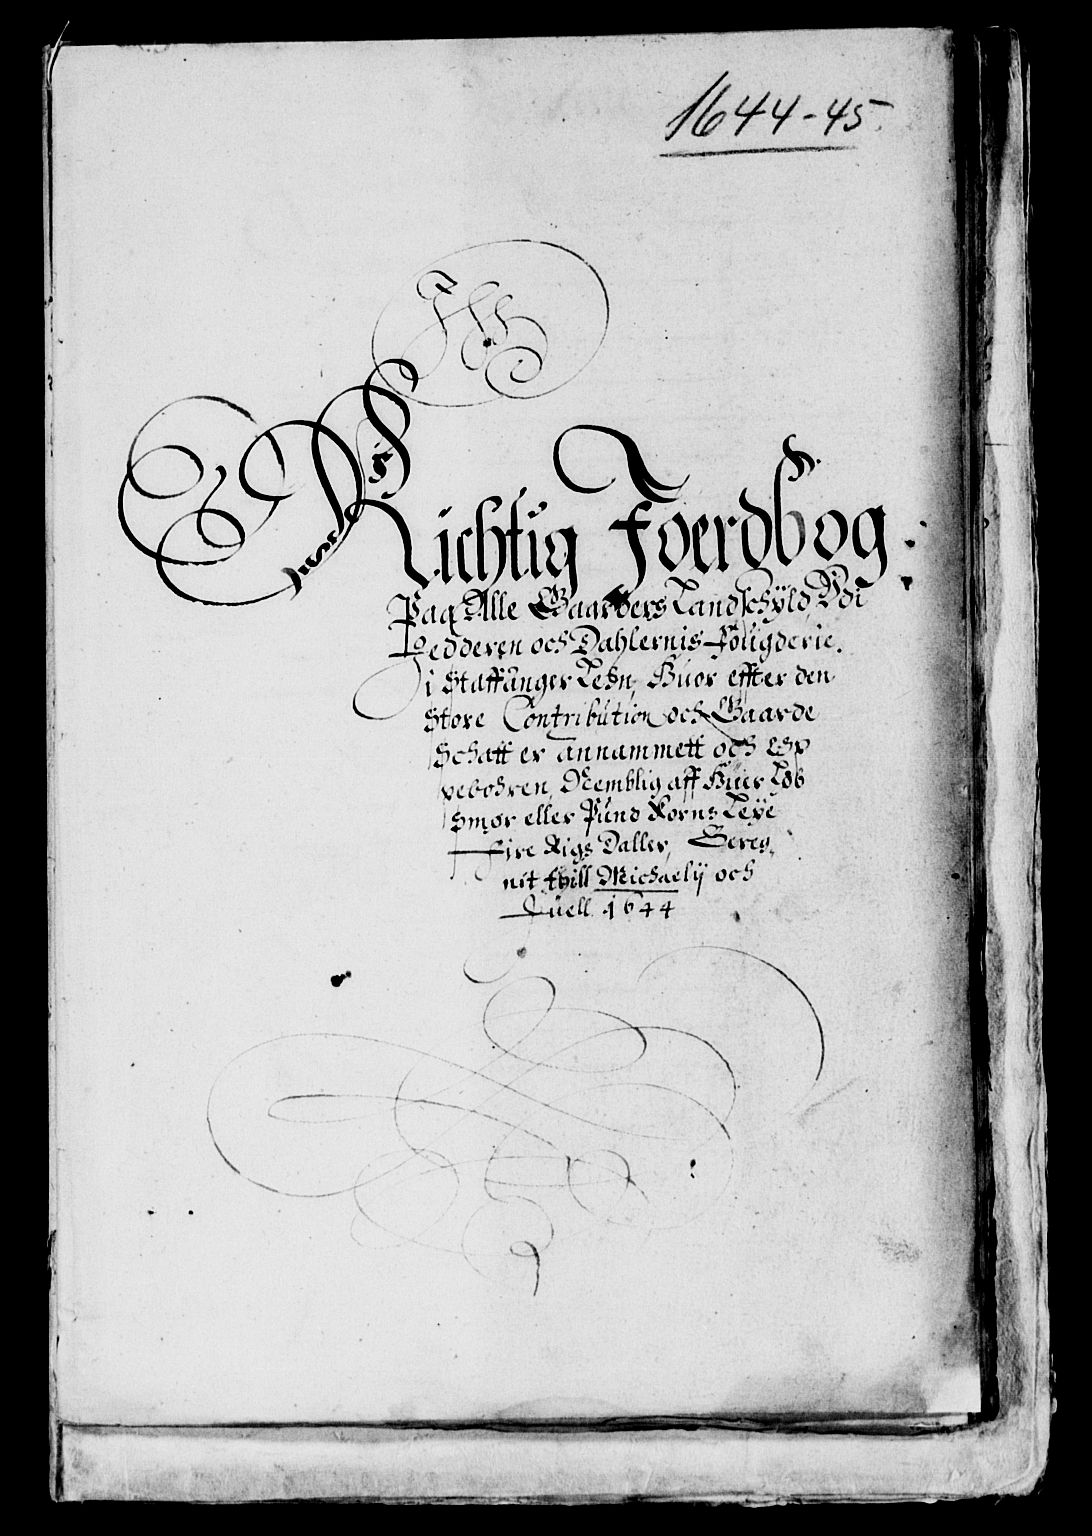 1644-45.
Richtig Joerdbog
Paa Alle Gaarders Landschÿld, Vdi
Jedderen och Dahlernis Fougderie.
i Staffanger Lehn, Huor effter den
Store Contribution och Gaarde
Schatt er annammett och
Nemblig aff Huer Løb
Smør eller Pund Korns Leÿe
Fire Rigs Daller, Bereg,
nit thill Michaelÿ och
Juell. 1644